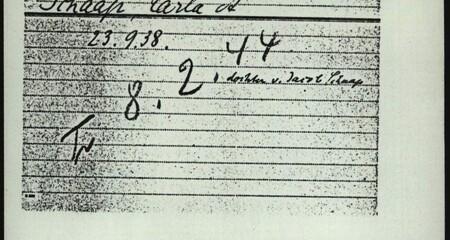 Schaap, Carla A
23.9.38.
8. 2. 44
dochter v. Jacob Schaap
Tr